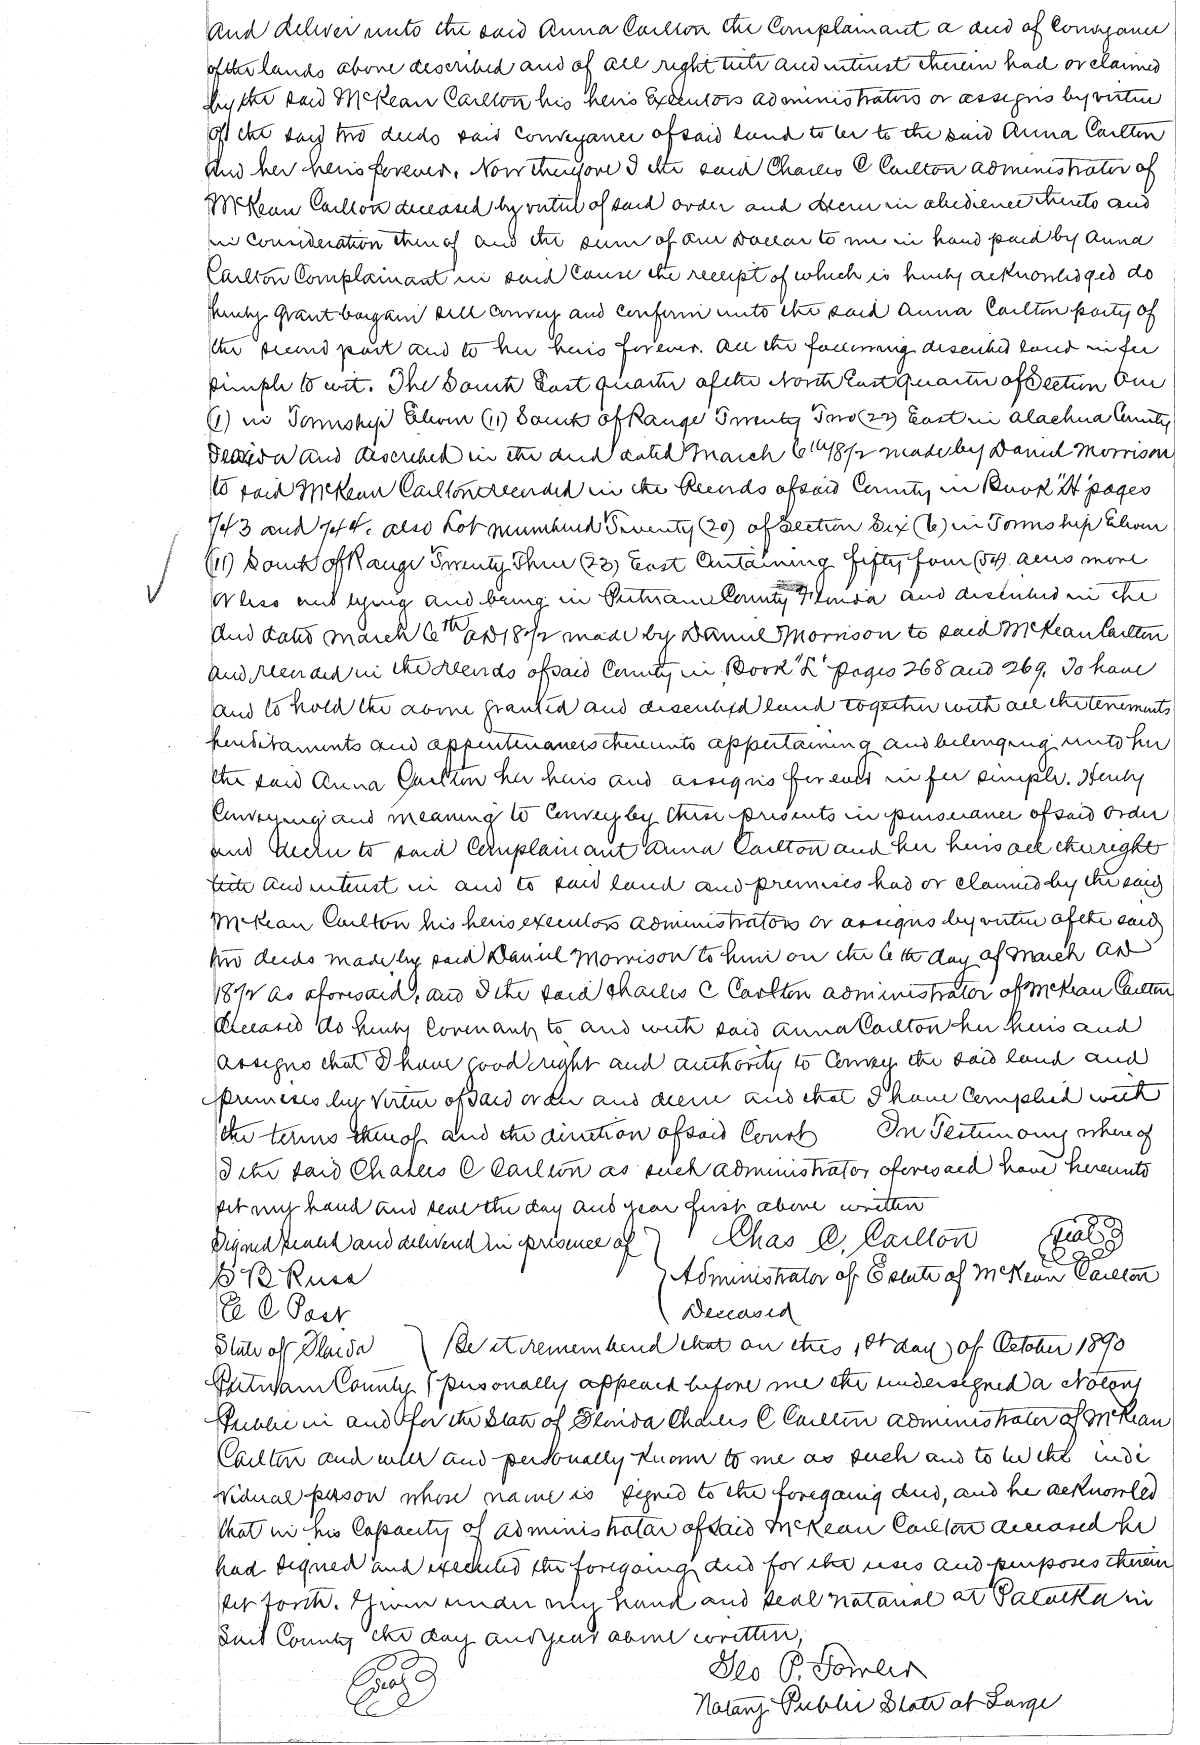 and deliver unto the said Anna Carlton the Complainant a deed of Conveyance
of the lands above described and of all right title and interest therein had or claimed
by the said McKean Carlton his heirs Executors administrators or assigns by virtue
of the said two deeds said conveyance of said land to be to the said Anna Carlton
and her heirs forever. Now therefore I the said Charles C Carlton administrator of
McKean Carlton deceased by virtue of said order and decree in obedience thereto and
in consideration thereof and the sum of one Dollar to me in hand paid by Anna
Carlton Complainant in said Cause the receipt of which is hereby acknowledged do
hereby grant bargain sell convey and confirm unto the said Anna Carlton party of
the second part and to her heirs forever. All the following described land in fee
simple to wit. The South East quarter of the North East quarter of Section One
(1) in Township Eleven (11) South of Range Twenty Two (22) East in Alachua County
Florida and described in the deed dated March 6th 1872 made by Daniel Morrison
to said McKean Carlton recorded in the Records of said County in Book "H" pages
743 and 744. also Lot numbered Twenty (20) of Section Six (6) in Township Eleven
(11) South of Range Twenty Three (23) East Containing fifty four (54) acres more
or less and lying and being in Putnam County Florida and described in the
deed dated March 6th AD 1872 made by Daniel Morrison to said McKean Carlton
and recorded in the records of said County in Book "L" pages 268 and 269. To have
and to hold the above granted and described land together with all the tenements
hereditaments and appurtenances thereunto appertaining and belonging unto her
the said Anna Carlton her heirs and assigns forever in fee simple. Hereby
Conveying and meaning to Convey by these presents in pursuance of said order
and decree to said Complainant Anna Carlton and her heirs all the right
title and interest in and to said land and premises had or claimed by the said
McKean Carlton his heirs executors administrators or assigns by virtue of the said
two deeds made by said Daniel Morrison to him on the 6th day of March AD
1872 as aforesaid, and I the said Charles C Carlton administrator of McKean Carlton
deceased do hereby Covenant to and with said Anna Carlton her heirs and
assigns that I have good right and authority to Convey the said land and
premises by virtue of said order and decree and that I have Complied with
the terms thereof and the direction of said Court In Testimony where of
I the said Charles C Carlton as such administrator aforesaid have hereunto
set my hand and seal the day and year first above written
Signed sealed and delivered in presence of Chas C. Carlton Seal
S B Russ Administrator of Estate of McKean Carlton
E C Post Deceased
State of Florida Be it remembered that on this 1st day of October 1890
Putnam County personally appeared before me the undersigned a Notary
Public in and for the State of Florida Charles C Carlton administrator of McKean
Carlton and well and personally known to me as such and to be the indi
vidual person whose name is signed to the foregoing deed, and he acknowled
that in his Capacity of administrator of said McKean Carlton deceased he
had signed and executed the foregoing deed for the uses and purposes therein
set forth. Given under my hand and seal notarial at Palatka in
said County the day and year above written,
Seal Geo P. Fowler
Notary Public State at Large